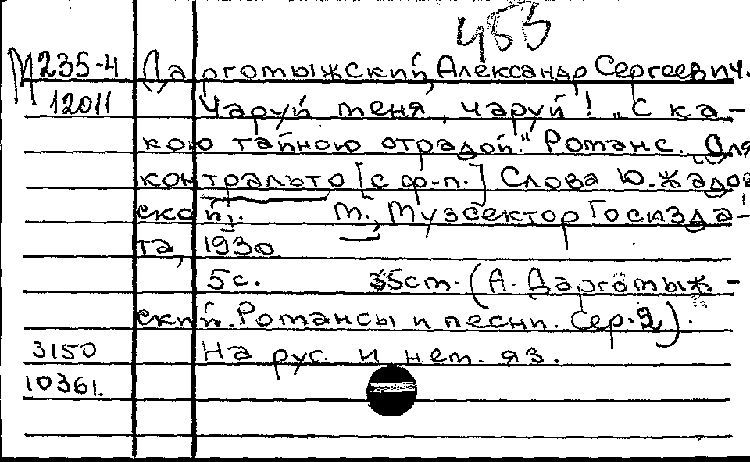 453
М235-4 Даргомыжский, Александр Сергеевич.
12011 Чаруй меня, чаруй! "С ка-
кою тайною отрадой." Романс. Для
контральто [с ф-п.] Слова Ю. Жадов-
ской. М., Музсектор Госизда-
та, 1930.
5с. 35см. (А. Даргомыж-
ский. Романсы и песни. Сер. 2).
3150 На рус. и нем. яз.
10361.